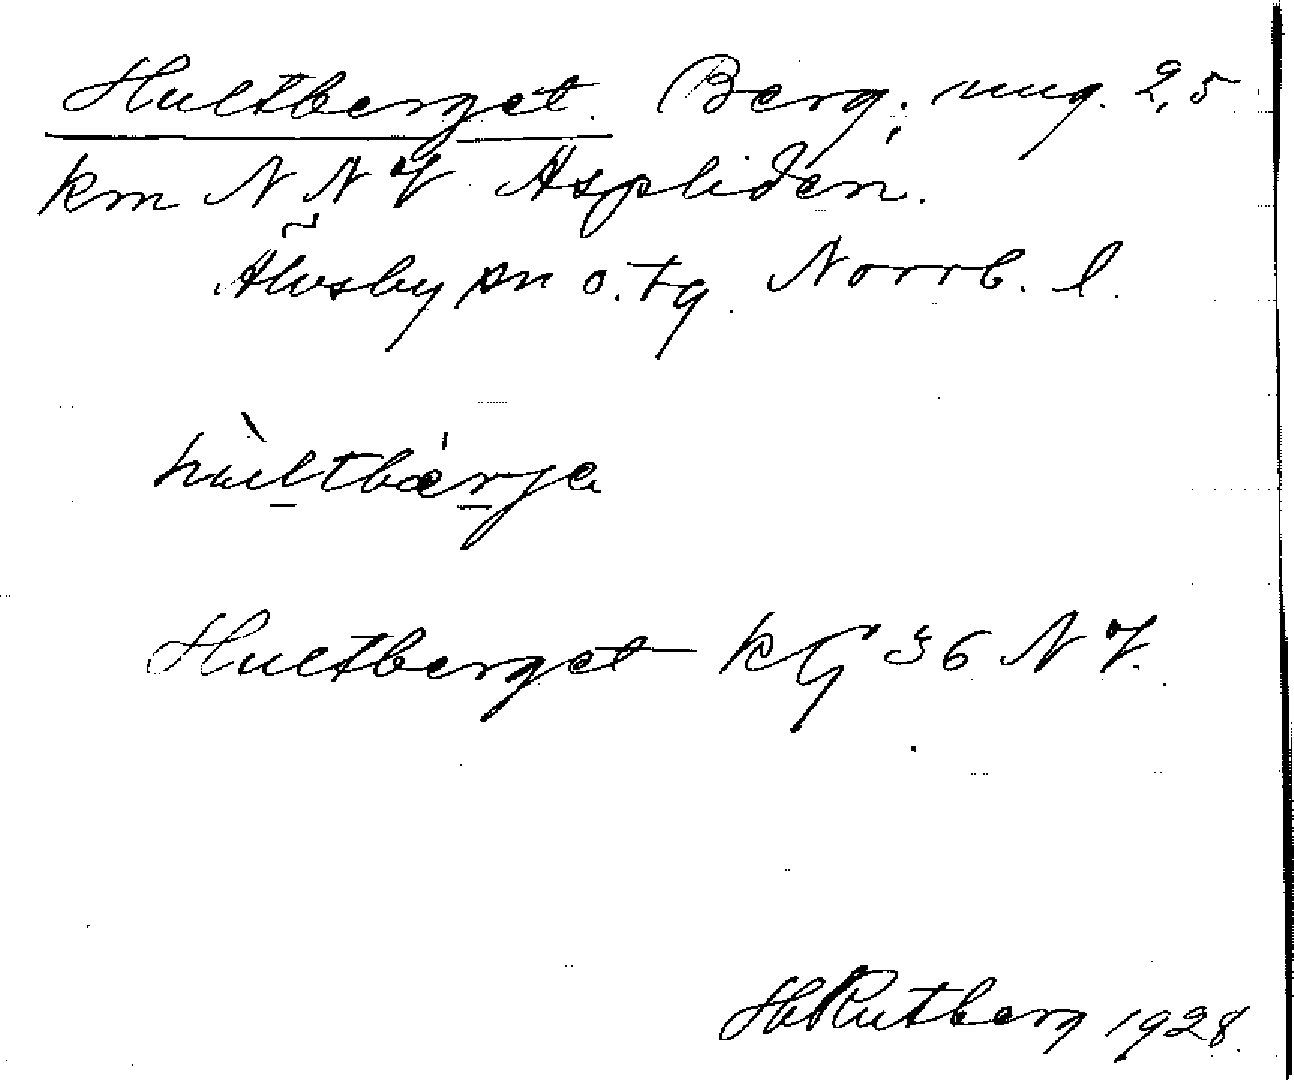 Hultberget. Berg; ung. 2,5
km N N V. Aspliden.
Älvsby sn o. tg. Norrb. l.
hùltbǽrja
Hultberget kG 36 N V.
H Rutberg 1928.